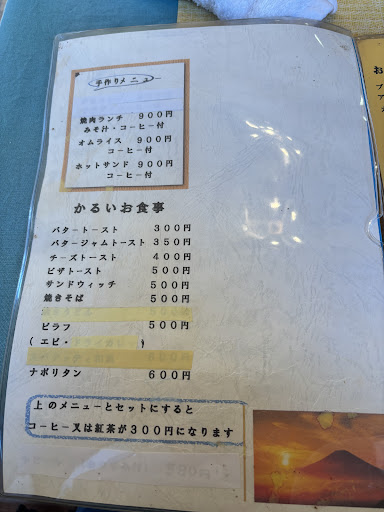 手作りメニュ
焼肉ランチ 900円
みそ汁・コーヒー付
オムライス 900円
コーヒー付
ホットサンド 900円
コーヒー付
かるいお食事
バタートースト 300円
バタージャムトースト 350円
チーズトースト 400円
ピザトースト 500円
サンドウィッチ 500円
焼きそば 500円
ピラフ 500円
(エビ・ )
ナポリタン 600円
上のメニューとセットにすると
コーヒー又は紅茶が300円になります
お